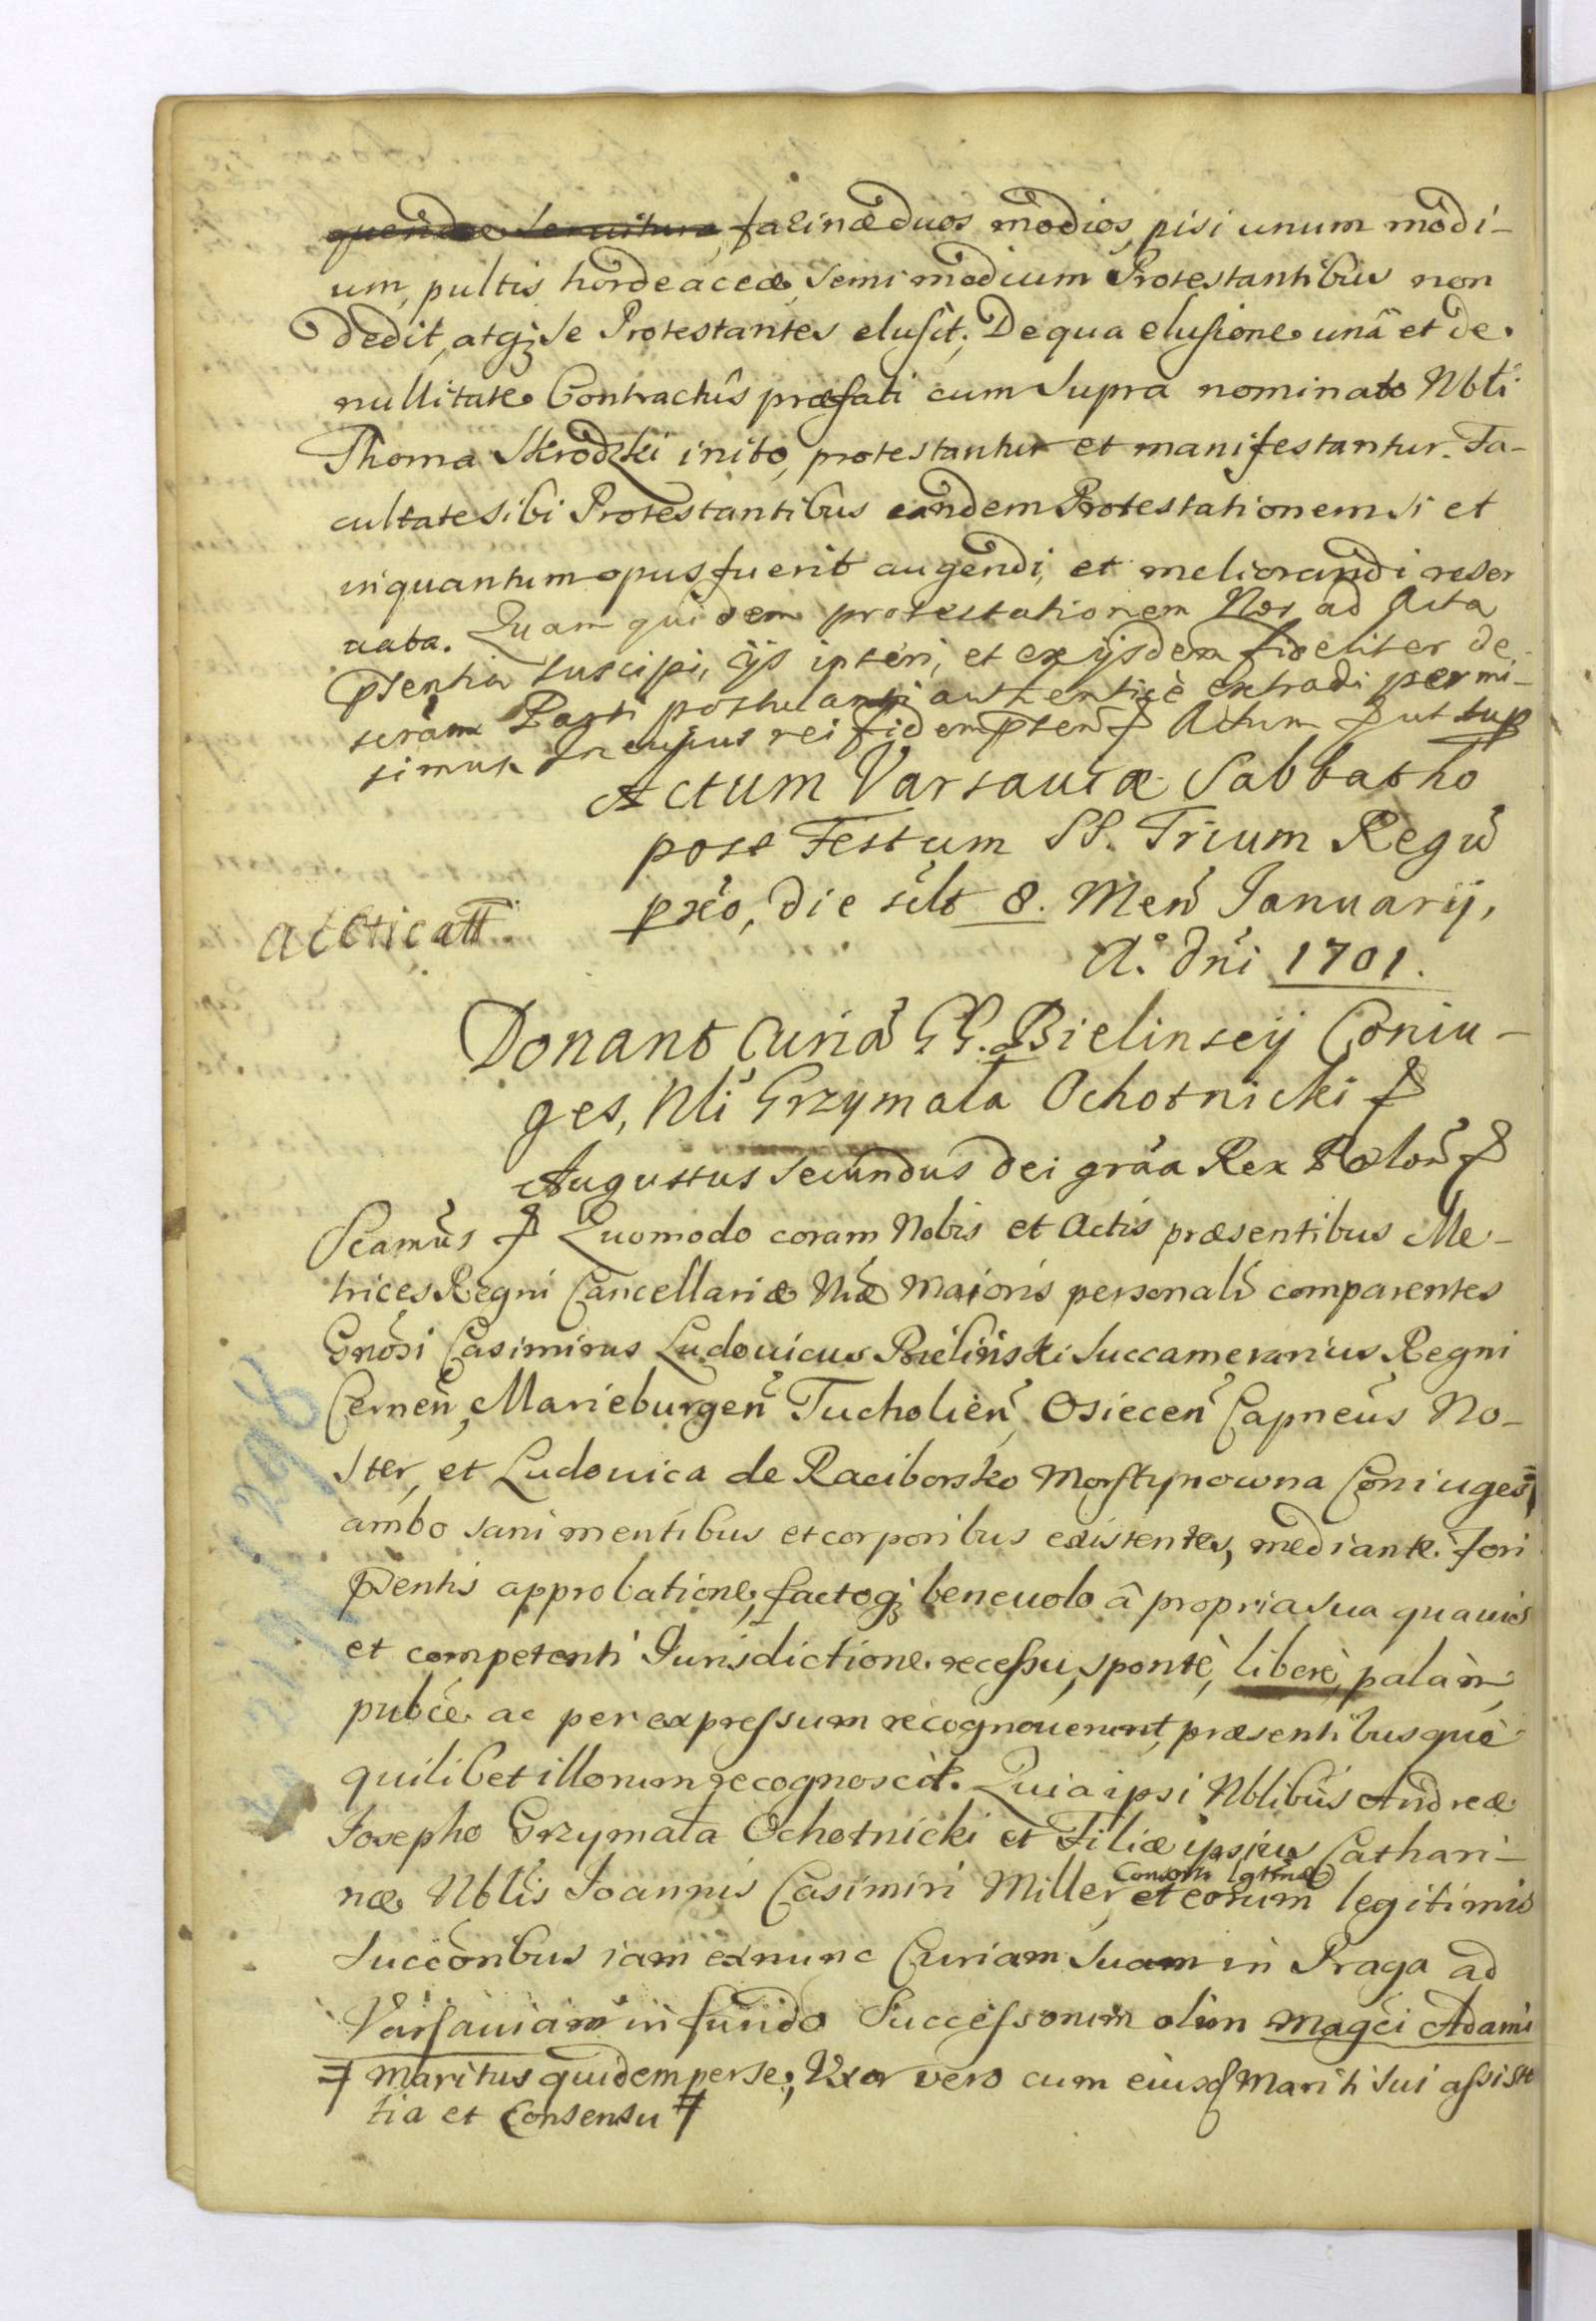 quendæ seruitura, farinæ duos modios, pisi unum modi-
um, pultis hordeaceæ, semi modium Protestantibus non
dedit, atq; se Protestantes elusit; De qua elusione unâ et de
nullitate Contractûs præfati cum supra nominato Nbli
Thoma Skrodzki inito, protestantur et manifestantur. Fa-
cultate sibi Protestantibus eandem Protestationem si et
inquantum opus fuerit augendi, et meliorandi reser
uata. Quam quidem protestationem Nos ad Acta
pñtia suscipi, ijs inseri, et ex ijsdem fideliter de
scriam Parti postulanti authenticè extradi permi-
simus In cujus rei fidem pñten. Actum ut sup
Actum Varsauiæ Sabbatho
post Festum SS. Trium Regũ
pxẽo, die sclt 8. Menš Januarij,
A.º Dñi 1701.
acticatt
Donant Curiã GG. Bielinscij Coniu-
ges, Nli Grzymała Ochotnicki
Augustus Secundus Dei grãa Rex Polon̄
Scamũs Quomodo coram Nobis et Actis præsentibus Me-
trices Regni Cancellariæ Nræ Maioris personalr̃ comparentes
Gnosi Casimirus Ludouicus Bieliński Succamerarius Regni
Cernen̄, Marieburgen̄ Tucholien̄, Osiecen̄ Capneus No-
ster, et Ludouica de Raciborsko Morstynowna Coniuges #
ambo sani mentibus et corporibus existentes, mediante fori
pñtis approbatione, factoq; beneuolo â propria sua quauis
et competenti Jurisdictione recessu, sponte, liberè, palàm,
pubce ac per expressum recognouerunt, præsentibusque
quilibet illorum recognoscit. Quia ipsi Nblibus Andreæ
Josepho Grzymała Ochotnicki et Filiæ ipsius Cathari-
næ Nblis Joannis Casimiri Miller, Consorti lgtimæ et eorum legitimis
Succõribus iam ex nunc Curiam suam in Praga ad
Varsauiam in fundo Successorum olim Magci Adami
# maritus quidem per se, Uxor vero cum eiusd Mariti sui assiste
tia et Consensu #